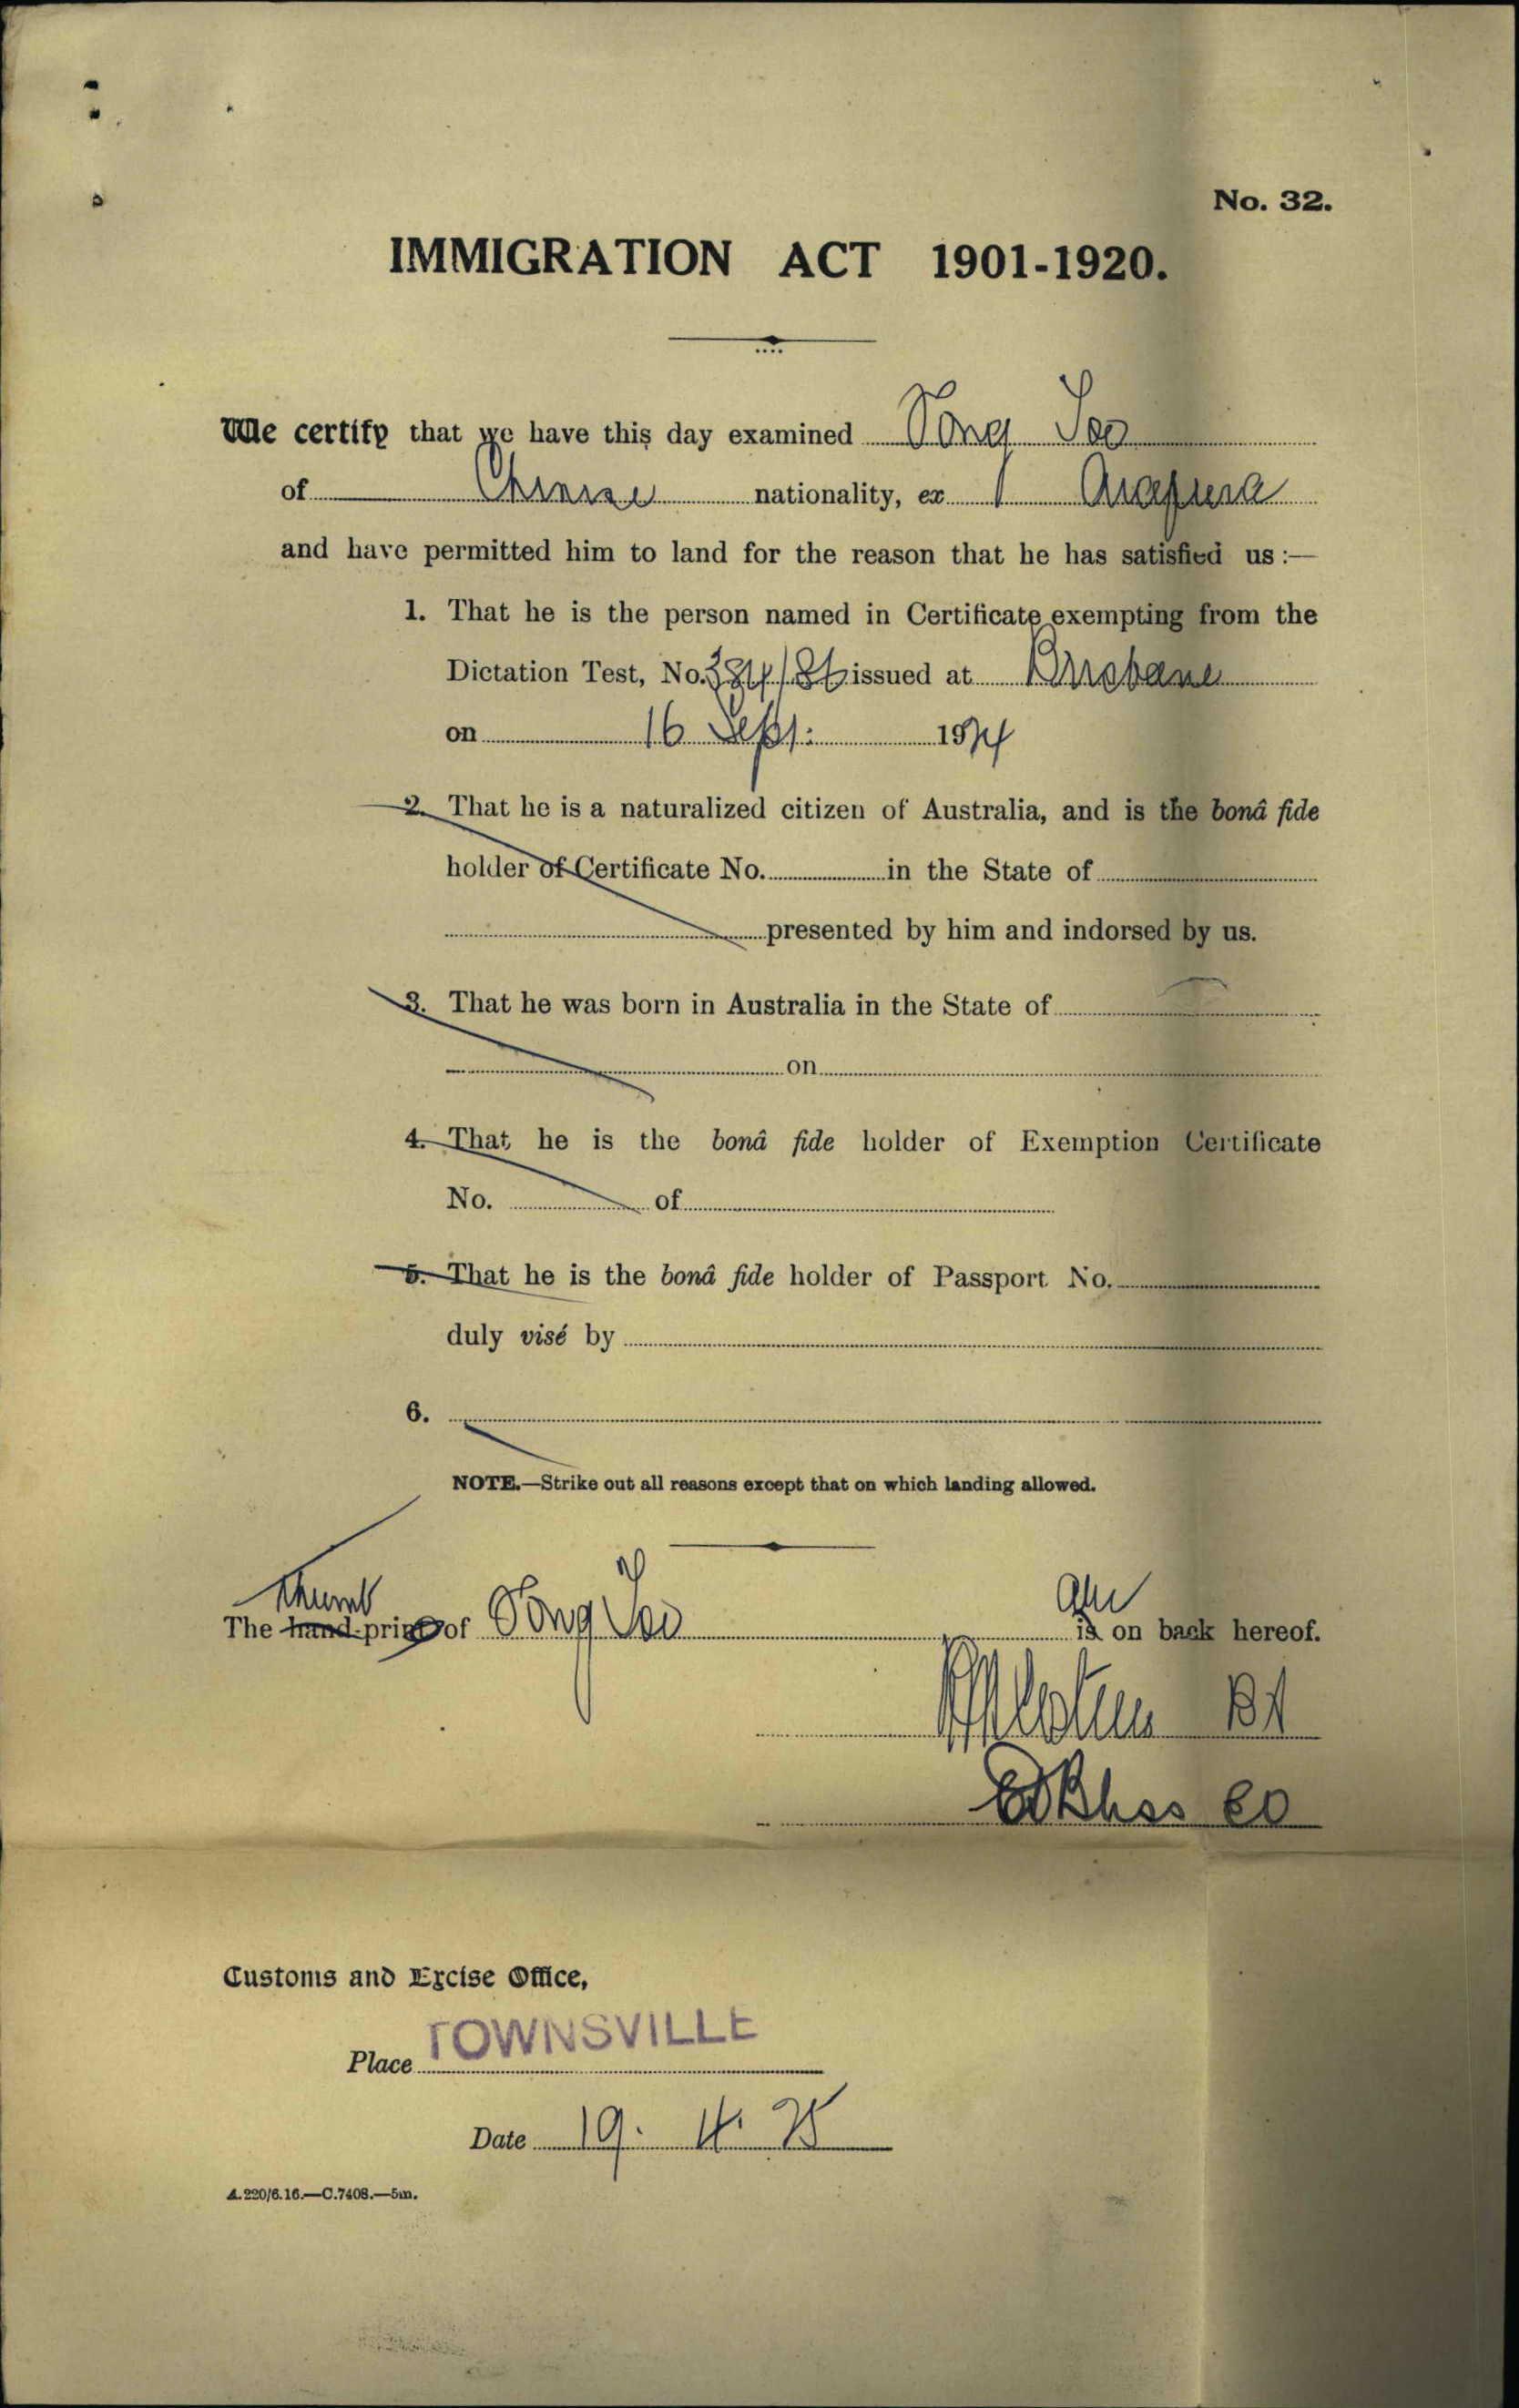 No. 32.
IMMIGRATION ACT 1901-1920.
We certify that we have this day examined Tong See
of Chinese nationality, ex Arafura
and have permitted him to land for the reason that he has satisfied us :—
1. That he is the person named in Certificate exempting from the
Dictation Test, No. issued at Brisbane
on 16 Sept: 1924
2. That he is a naturalized citizen of Australia, and is the bonâ fide
holder of Certificate No. in the State of
presented by him and indorsed by us.
3. That he was born in Australia in the State of
on
4. That he is the bonâ fide holder of Exemption Certificate
No. of
5. That he is the bonâ fide holder of Passport No.
duly visé by
6.
NOTE.—Strike out all reasons except that on which landing allowed.
Thumb are
The hand-print of Tong See is on back hereof.
Customs and Excise Office,
Place TOWNSVILLE
Date 19. 4. 25
A.220/6.16.—C.7408.—5m.